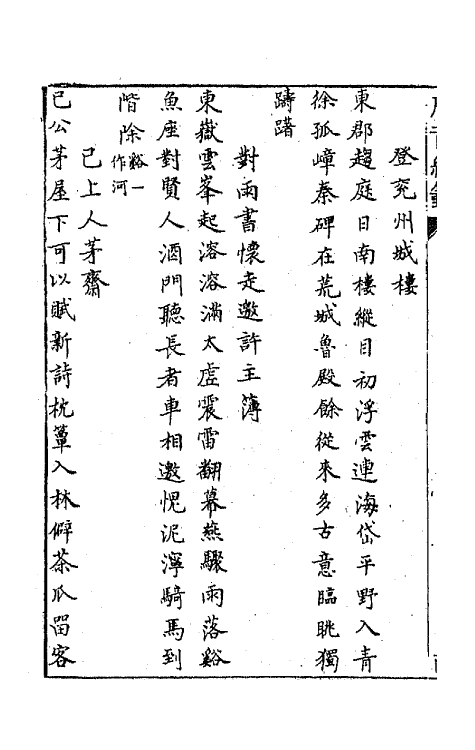 登兖州城樓
東郡趨庭日南樓縱目初浮雲連海岱平野入青
徐孤嶂秦碑在荒城魯殿餘從來多古意臨眺獨
躊躇
對雨書懷走邀許主簿
東嶽雲峯起溶溶滿太虛震雷翻幕燕驟雨落谿
魚座對賢人酒門聽長者車相邀愧泥濘騎馬到
階除谿一作河
已上人茅齋
已公茅屋下可以賦新詩枕簟入林僻茶瓜留客